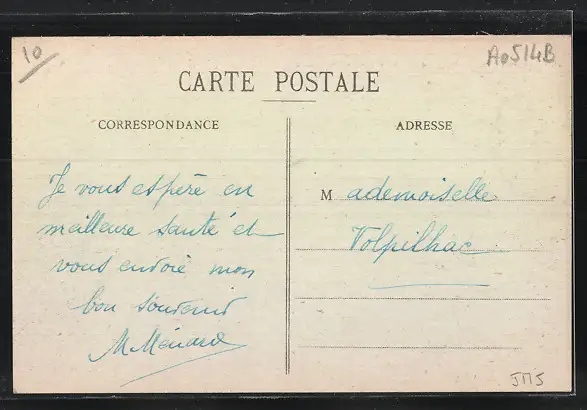 10
Ao514B
CARTE POSTALE
CORRESPONDANCE
ADRESSE
Je vous espère en
meilleure santé et
vous envoie mon
bon souvenir
M Ménard
M ademoiselle
Volpilhac
JMS